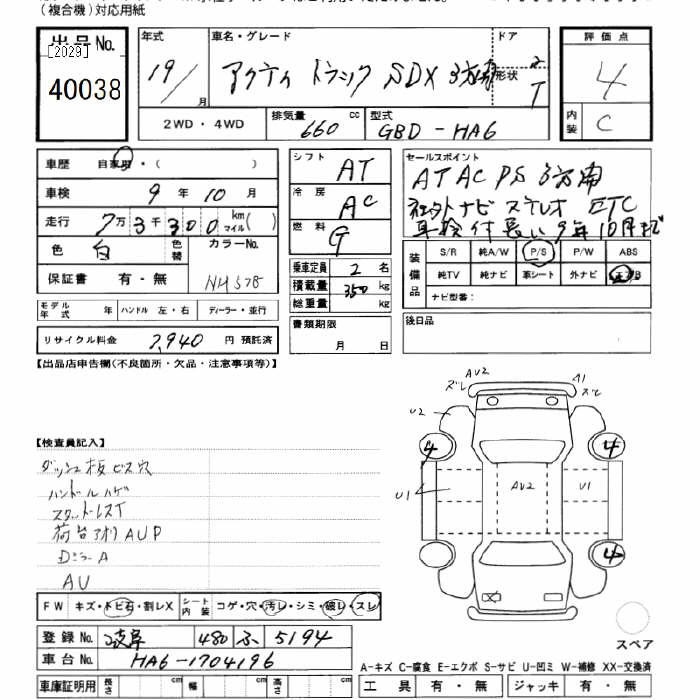 (複合機)対応用紙
出品No. [2029] 40038
年式 19/ 月
車名・グレード アクティ トラック SDX 3方開
ドア 形状 2 T
評価点 4
内装 C
2WD・4WD
排気量 660 cc
型式 GBD-HA6
車歴 自家用・( )
車検 9年10月
走行 7万3千300 km マイル( )
色 白 色替 カラーNo. NH578
保証書 有・無
モデル年式 年 ハンドル 左・右 ディーラー・並行
リサイクル料金 7,940 円 預託済
シフト AT
冷房 AC
燃料 G
乗車定員 2 名
積載量 350 kg
総重量 kg
書類期限 月 日
セールスポイント
AT AC PS 3方開
社外ナビ ステレオ ETC
車検付長い9年10月まで
装備品 S/R 純A/W P/S P/W ABS
純TV 純ナビ 革シート 外ナビ エアB
ナビ型番:
後日品
【出品店申告欄(不良箇所・欠品・注意事項等)】
【検査員記入】
ダッシュ板ビス穴
ハンドルハゲ
スタットレスT
荷台アオリAUP
DミラーA
AU
AU2 ズレ A1 ズレ
U2
4 4
U1 AU2 U1
4
X
スペア
FW キズ・トビ石・割レX シート内装 コゲ・穴・汚レ・シミ・破レ・スレ
登録No. 岐阜 480 ふ 5194
車台No. HA6-1704196
A-キズ C-腐食 E-エクボ S-サビ U-凹ミ W-補修 XX-交換済
車庫証明用 長さ cm 幅 cm 高さ cm 工具 有・無 ジャッキ 有・無